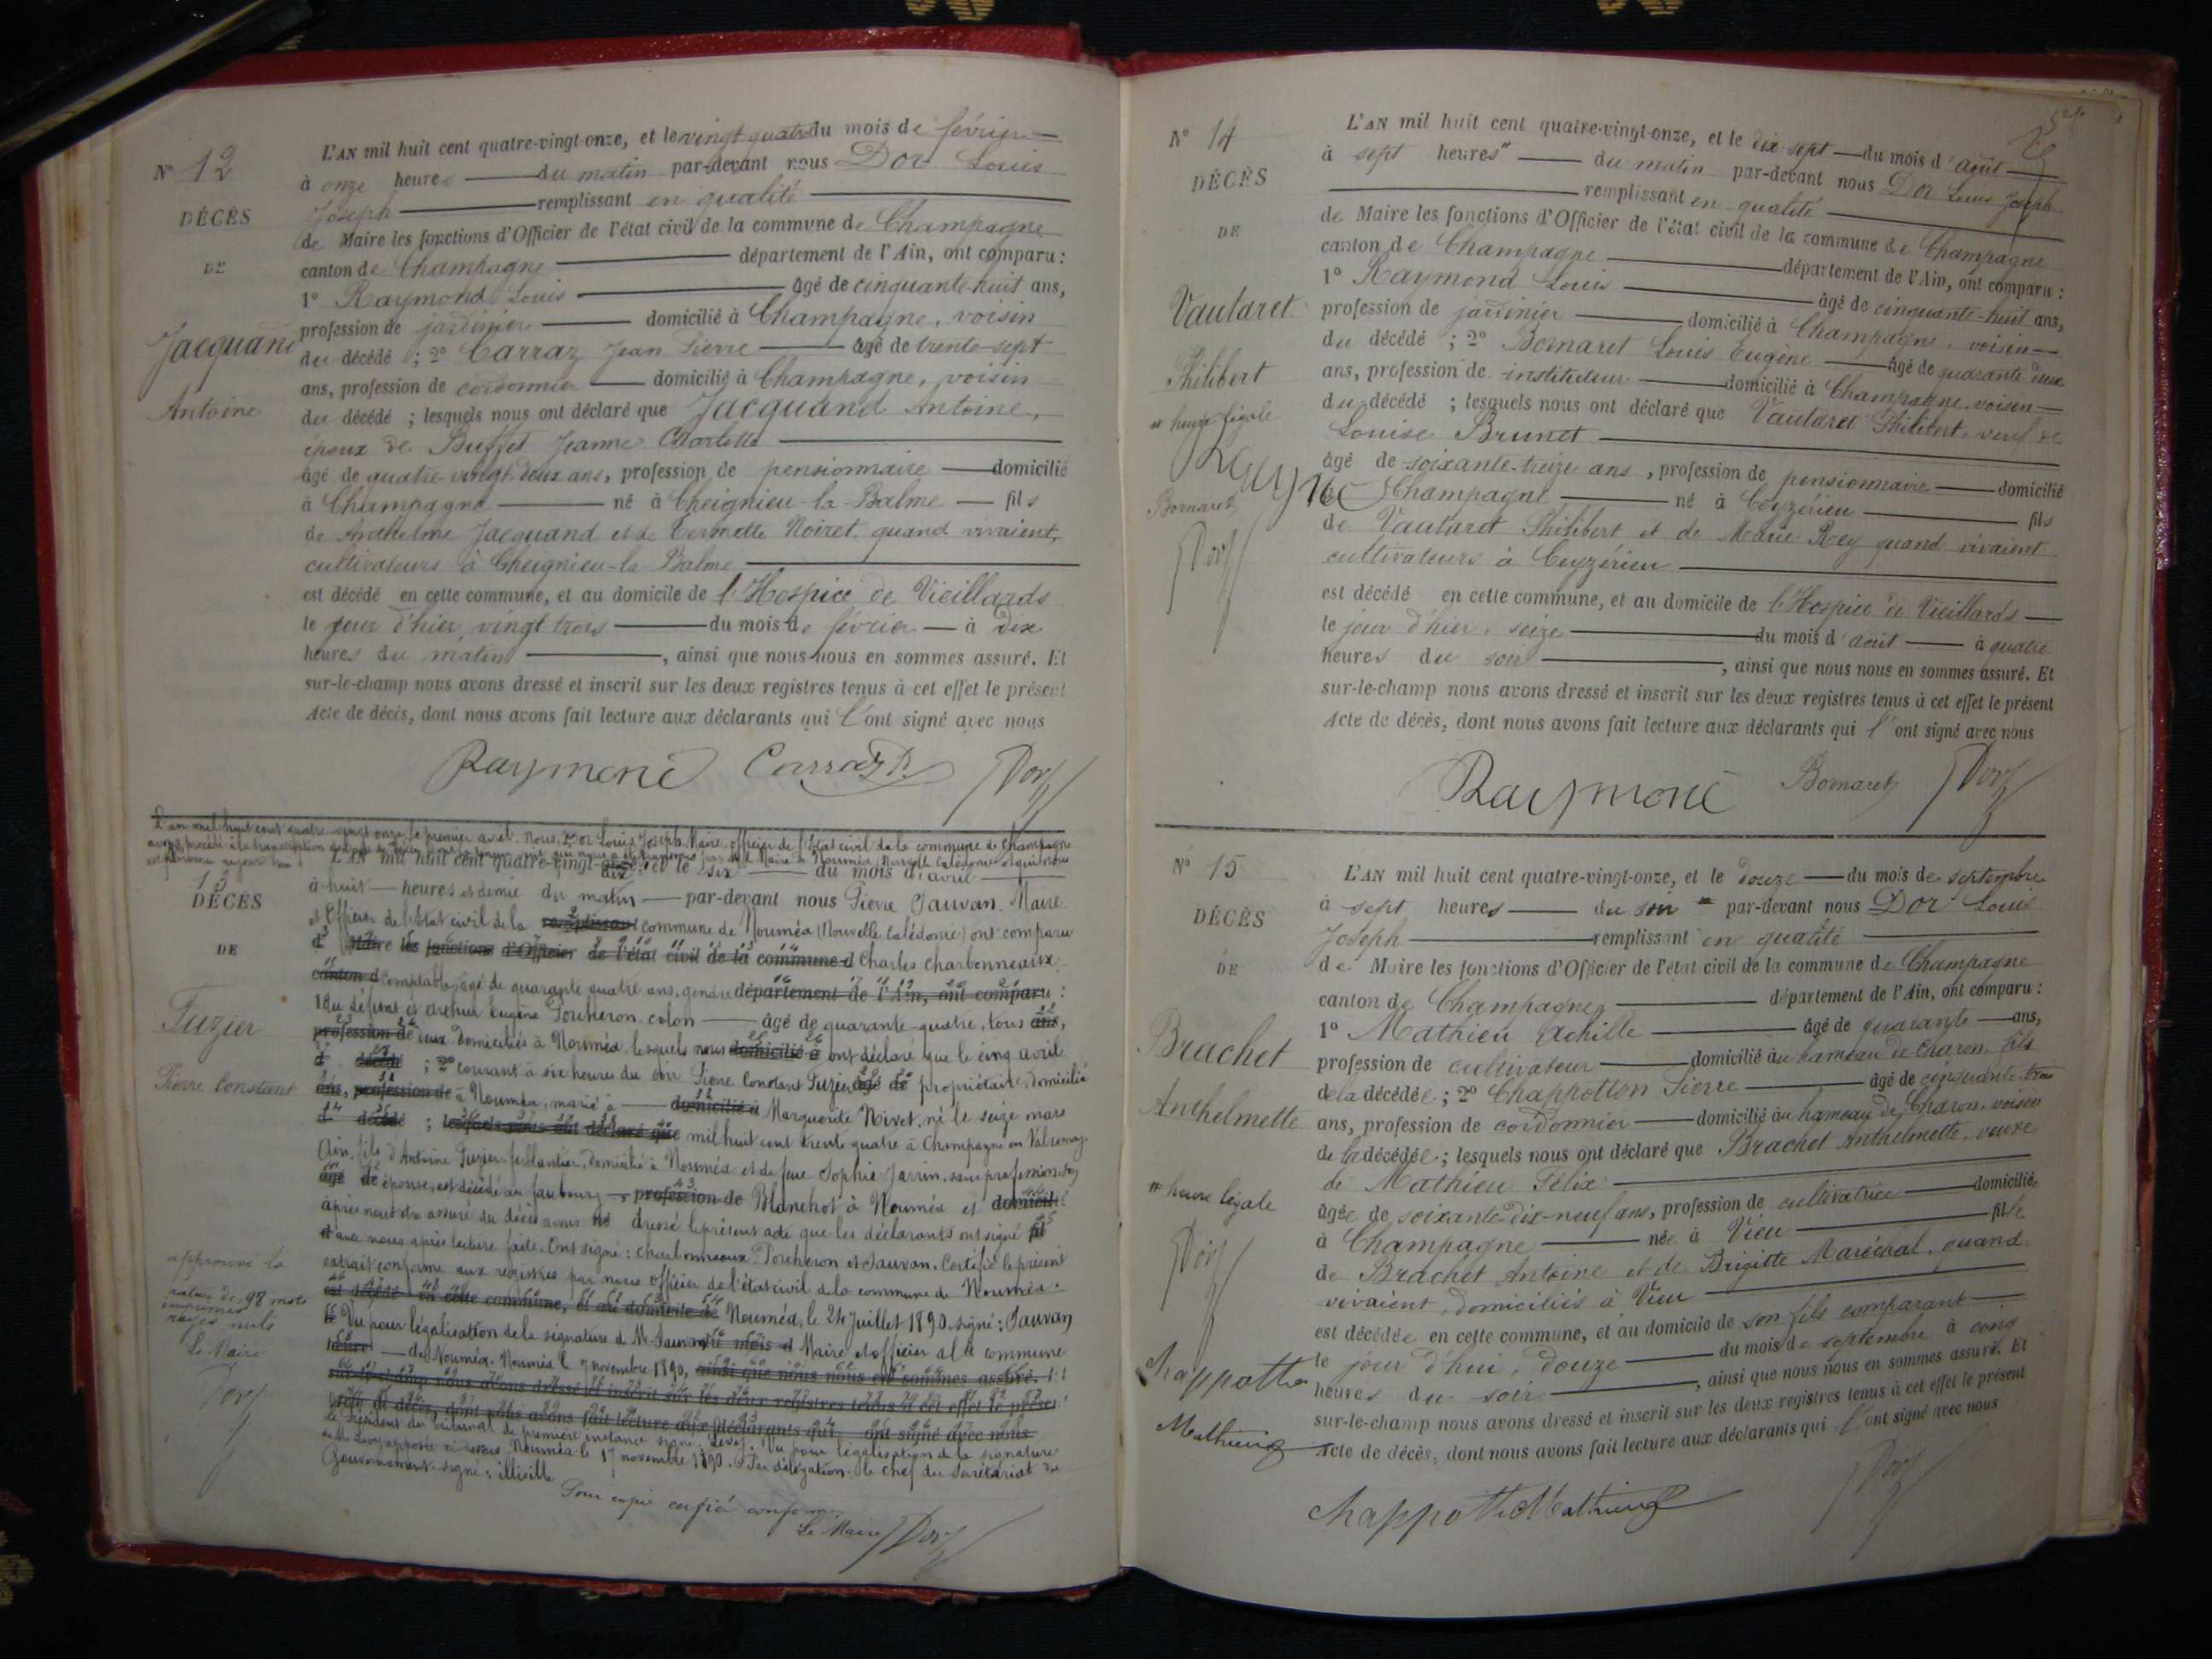 N° 12
DÉCÈS
DE
Jacquand
Antoine
L'AN mil huit cent quatre-vingt-onze, et le vingt quatre du mois de février
à onze heures du matin par-devant nous Dor Louis
Joseph remplissant en qualité
de Maire les fonctions d'Officier de l'état civil de la commune de Champagne
canton de Champagne département de l'Ain, ont comparu :
1° Raymond Louis âgé de cinquante-huit ans,
profession de jardinier domicilié à Champagne, voisin
du décédé ; 2° Carraz Jean Pierre âgé de trente-sept
ans, profession de cordonnier domicilié à Champagne, voisin
du décédé ; lesquels nous ont déclaré que Jacquand Antoine,
époux de Buffet Jeanne Charlotte
âgé de quatre-vingt-deux ans, profession de pensionnaire domicilié
à Champagne né à Cheignieu-la-Balme fils
de Anthelme Jacquand et de Noiret, quand vivaient,
cultivateurs à Cheignieu-la-Balme
est décédé en cette commune, et au domicile de l'Hospice de Vieillards
le jour d'hier, vingt trois du mois de février à dix
heures du matin, ainsi que nous nous en sommes assuré. Et
sur-le-champ nous avons dressé et inscrit sur les deux registres tenus à cet effet le présent
Acte de décès, dont nous avons fait lecture aux déclarants qui l'ont signé avec nous
Raymond Carraz Dor
L'an mil huit cent quatre-vingt onze, le premier avril. Nous, Dor Louis Joseph Maire, officier de l'Etat civil de la commune de Champagne
avons procédé à la transcription par M. le Maire de Nouméa, Nouvelle Calédonie et qui nous
est parvenu aujourd'hui
13
DÉCÈS
DE
Fuzier
Pierre Constant
L'AN mil huit cent quatre-vingt-dix et le six du mois d'avril
à huit heures et demie du matin par-devant nous Pierre Sauvan Maire
et Officier de l'Etat civil de la remplissant commune de Nouméa (Nouvelle Calédonie) ont comparu
d Maire les fonctions d'Officier de l'état civil de la commune d Charles Charbonneaux
canton d comptable, âgé de quarante quatre ans, gendre département de l'Ain, ont comparu :
1° du défunt et Arthur Eugène Porcheron colon âgé de quarante-quatre, tous ans,
profession de deux domiciliés à Nouméa lesquels nous domicilié à ont déclaré que le cinq avril
d décédé ; 2° courant à six heures du soir Pierre Constant Fuzier âgé de propriétaire, domicilié
ans, profession de à Nouméa, marié à domicilié à Marguerite Nivet, né le seize mars
d décédé ; lesquels nous ont déclaré que mil huit cent trente quatre à Champagne en Valromey
Ain, fils d'Antoine Fuzier, ferblantier, domicilié à Nouméa et de feue Sophie Jarrin, sans profession, son
âgé de épouse, est décédé au faubourg profession de Blanchot à Nouméa et domicilié
après nous être assuré du décès avons né dressé le présent acte que les déclarants ont signé fil
et avec nous après lecture faite. Ont signé : Charbonneaux Porcheron et Sauvan. Certifié le présent
extrait conforme aux registres par nous officier de l'état civil de la commune de Nouméa.
est décédé en cette commune, et au domicile de Nouméa, le 24 Juillet 1890. signé : Sauvan
le Vu pour légalisation de la signature d M. Sauvan du mois d Maire et officier de la commune
heure de Nouméa. Nouméa le 7 novembre 1890, ainsi que nous nous en sommes assuré. Et
sur-le-champ nous avons dressé et inscrit sur les deux registres tenus à cet effet le présent
Acte de décès, dont nous avons fait lecture aux déclarants qui ont signé avec nous
Le Président du Tribunal de première instance signé : Vu pour légalisation de la signature
apposée ci-dessus Nouméa le 17 novembre 1890. Par délégation. Le chef du Secrétariat du
Gouvernement. signé : illisible
Pour copie certifiée conforme,
Le Maire Dor
approuvé la
rature de 98 mots
imprimés
rayés nuls
Le Maire
Dor
N° 14
DÉCÈS
DE
Vautaret
Philibert
heure légale
Raymond
Bornaret
Dor
L'AN mil huit cent quatre-vingt-onze, et le dix-sept du mois d'août
à sept heures du matin par-devant nous Dor Louis Joseph
remplissant en qualité
de Maire les fonctions d'Officier de l'état civil de la commune de Champagne
canton de Champagne département de l'Ain, ont comparu :
1° Raymond Louis âgé de cinquante-huit ans,
profession de jardinier domicilié à Champagne, voisin
du décédé ; 2° Bornaret Louis Eugène âgé de quarante deux
ans, profession de instituteur domicilié à Champagne, voisin
du décédé ; lesquels nous ont déclaré que Vautaret Philibert, veuf de
Louise Brunet
âgé de soixante-treize ans, profession de pensionnaire domicilié
à Champagne né à Ceyzérieu fils
de Vautaret Philibert et de Marie Rey quand vivaient
cultivateurs à Ceyzérieu
est décédé en cette commune, et au domicile de l'Hospice de Vieillards
le jour d'hier, seize du mois d'août à quatre
heures du soir, ainsi que nous nous en sommes assuré. Et
sur-le-champ nous avons dressé et inscrit sur les deux registres tenus à cet effet le présent
Acte de décès, dont nous avons fait lecture aux déclarants qui l'ont signé avec nous
Raymond Bornaret Dor
N° 15
DÉCÈS
DE
Brachet
Anthelmette
heure légale
Dor
Chappotton
Mathieu
L'AN mil huit cent quatre-vingt-onze, et le douze du mois de septembre
à sept heures du soir par-devant nous Dor Louis
Joseph remplissant en qualité
de Maire les fonctions d'Officier de l'état civil de la commune de Champagne
canton de Champagne département de l'Ain, ont comparu :
1° Mathieu Achille âgé de quarante ans,
profession de cultivateur domicilié au hameau de Charon, fils
de la décédée ; 2° Chappotton Pierre âgé de cinquante-trois
ans, profession de cordonnier domicilié au hameau de Charon, voisin
de la décédée ; lesquels nous ont déclaré que Brachet Anthelmette, veuve
de Mathieu Félix
âgée de soixante-dix-neuf ans, profession de cultivatrice domiciliée
à Champagne née à Vieu fille
de Brachet Antoine et de Brigitte Maréchal, quand
vivaient, domiciliés à Vieu
est décédée en cette commune, et au domicile de son fils comparant
le jour d'hui, douze du mois de septembre à cinq
heures du soir, ainsi que nous nous en sommes assuré. Et
sur-le-champ nous avons dressé et inscrit sur les deux registres tenus à cet effet le présent
Acte de décès, dont nous avons fait lecture aux déclarants qui l'ont signé avec nous
Chappotton Mathieu Dor